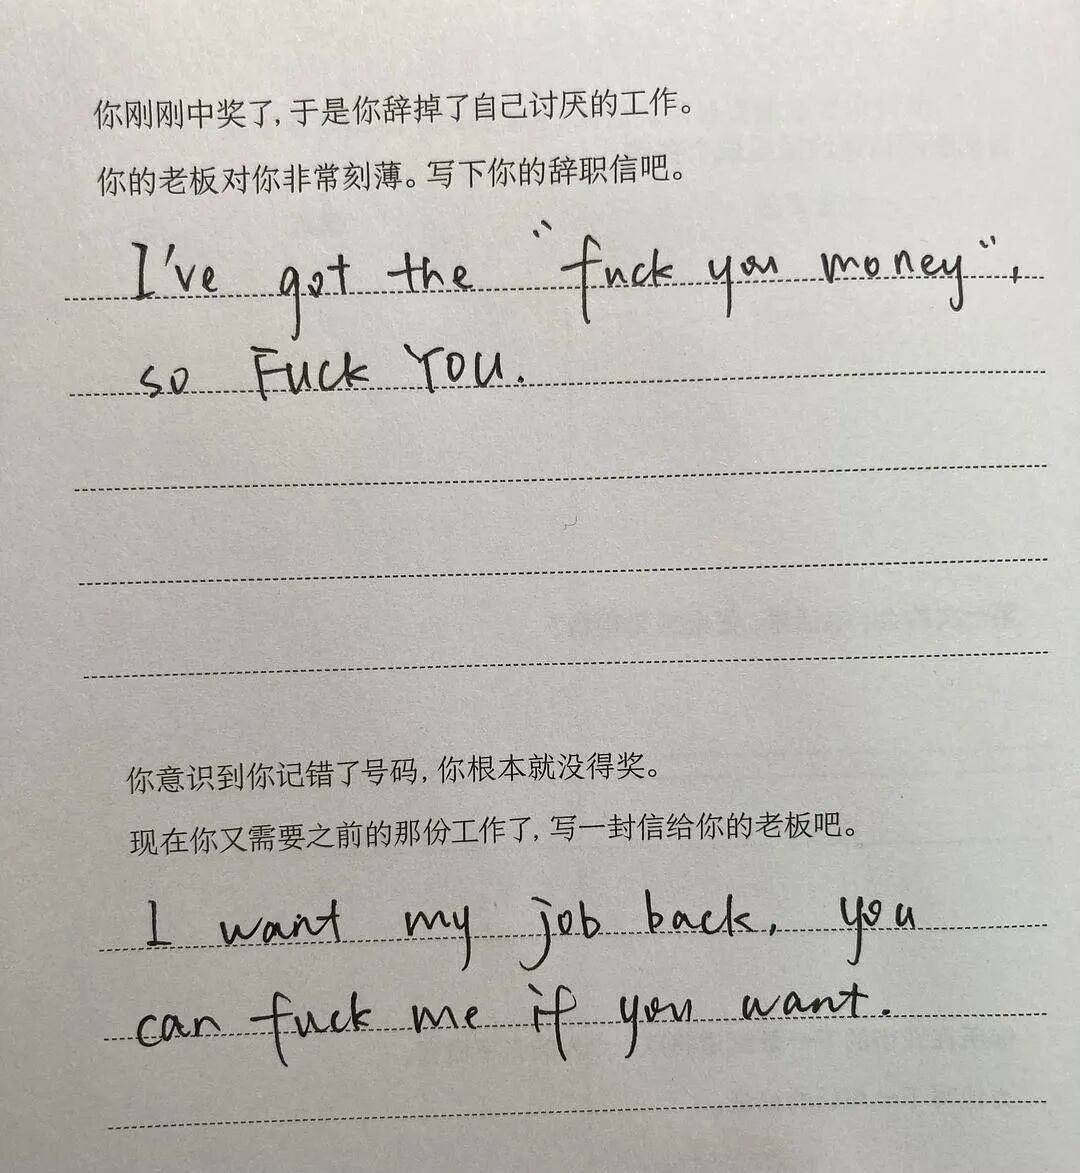 你刚刚中奖了, 于是你辞掉了自己讨厌的工作。
你的老板对你非常刻薄。写下你的辞职信吧。
I've got the "fuck you money",
so FUCK YOU.
你意识到你记错了号码, 你根本就没得奖。
现在你又需要之前的那份工作了, 写一封信给你的老板吧。
I want my job back, you
can fuck me if you want.